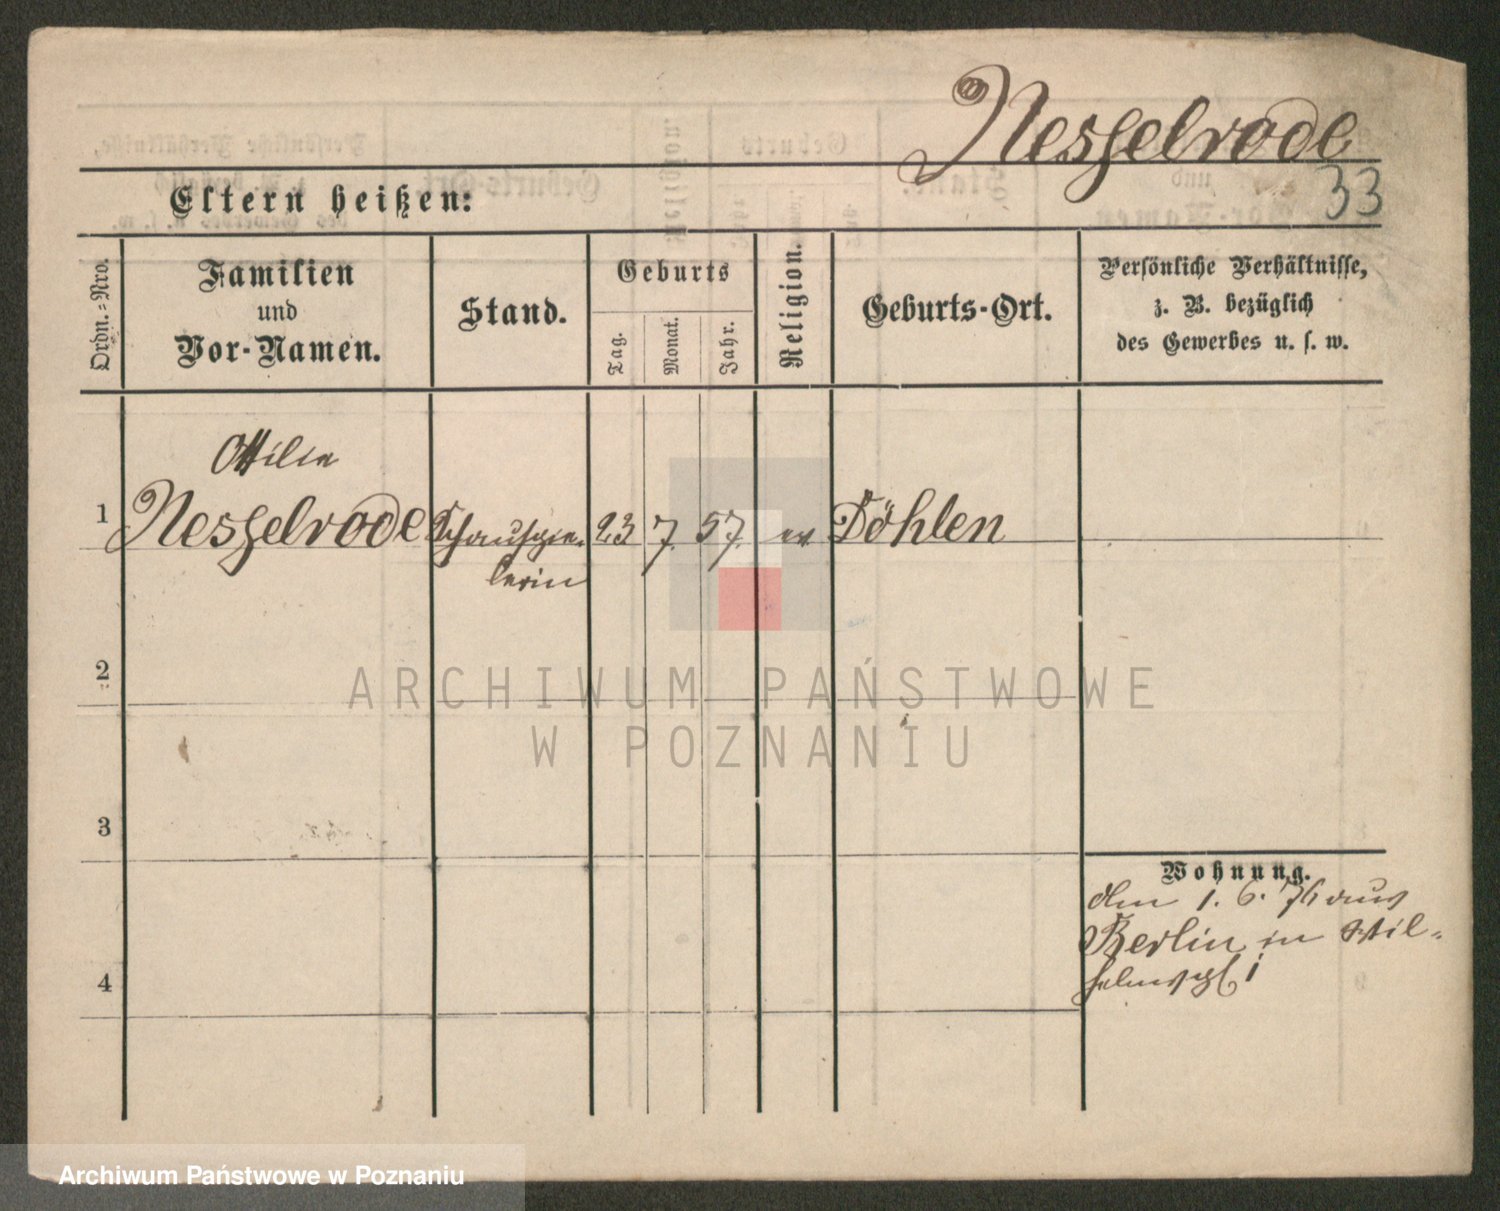 Nesselrode
33
Eltern heißen:
Ordn.-Nro.
Familien
und
Vor-Namen.
Stand.
Geburts
Tag.
Monat.
Jahr.
Religion.
Geburts-Ort.
Persönliche Verhältnisse,
z. B. bezüglich
des Gewerbes u. s. w.
Ottilie
1 Nesselrode Schauspie- 23 7. 57. ev Döhlen
lerin
2
3
4
Wohnung.
den 1. 6. 76 aus
Berlin in Wil-
helmspl 1
ARCHIWUM PAŃSTWOWE
W POZNANIU
Archiwum Państwowe w Poznaniu